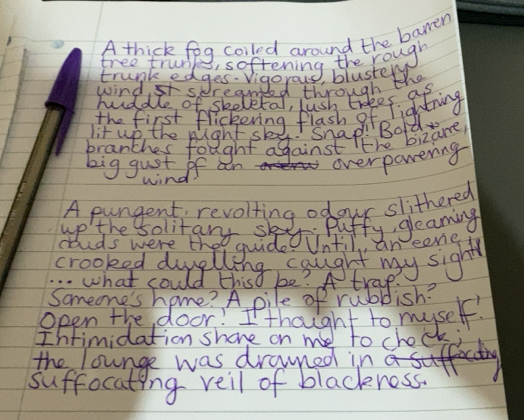 A thick fog coiled around the barren
tree trunks, softening the rough
trunk edges. Vigorous, blustery
wind st screamed through the
huddle of skeletal, lush trees as
the first flickering flash of lightning
lit up the night sky. Snap! Bold
branches fought against the bizarre,
big gust of an overpowering
wind.
A pungent, revolting odour slithered
up the solitary sky. Puffy, gleaming
clouds were the guide. Until, an eerie,
crooked dwelling caught my sight!
... what could this be? A trap?
Someone's home? A pile of rubbish?
Open the door! I thought to myself!
Intimidation shone on me to check.
the lounge was drowned in a suffocating
suffocating veil of blackness.